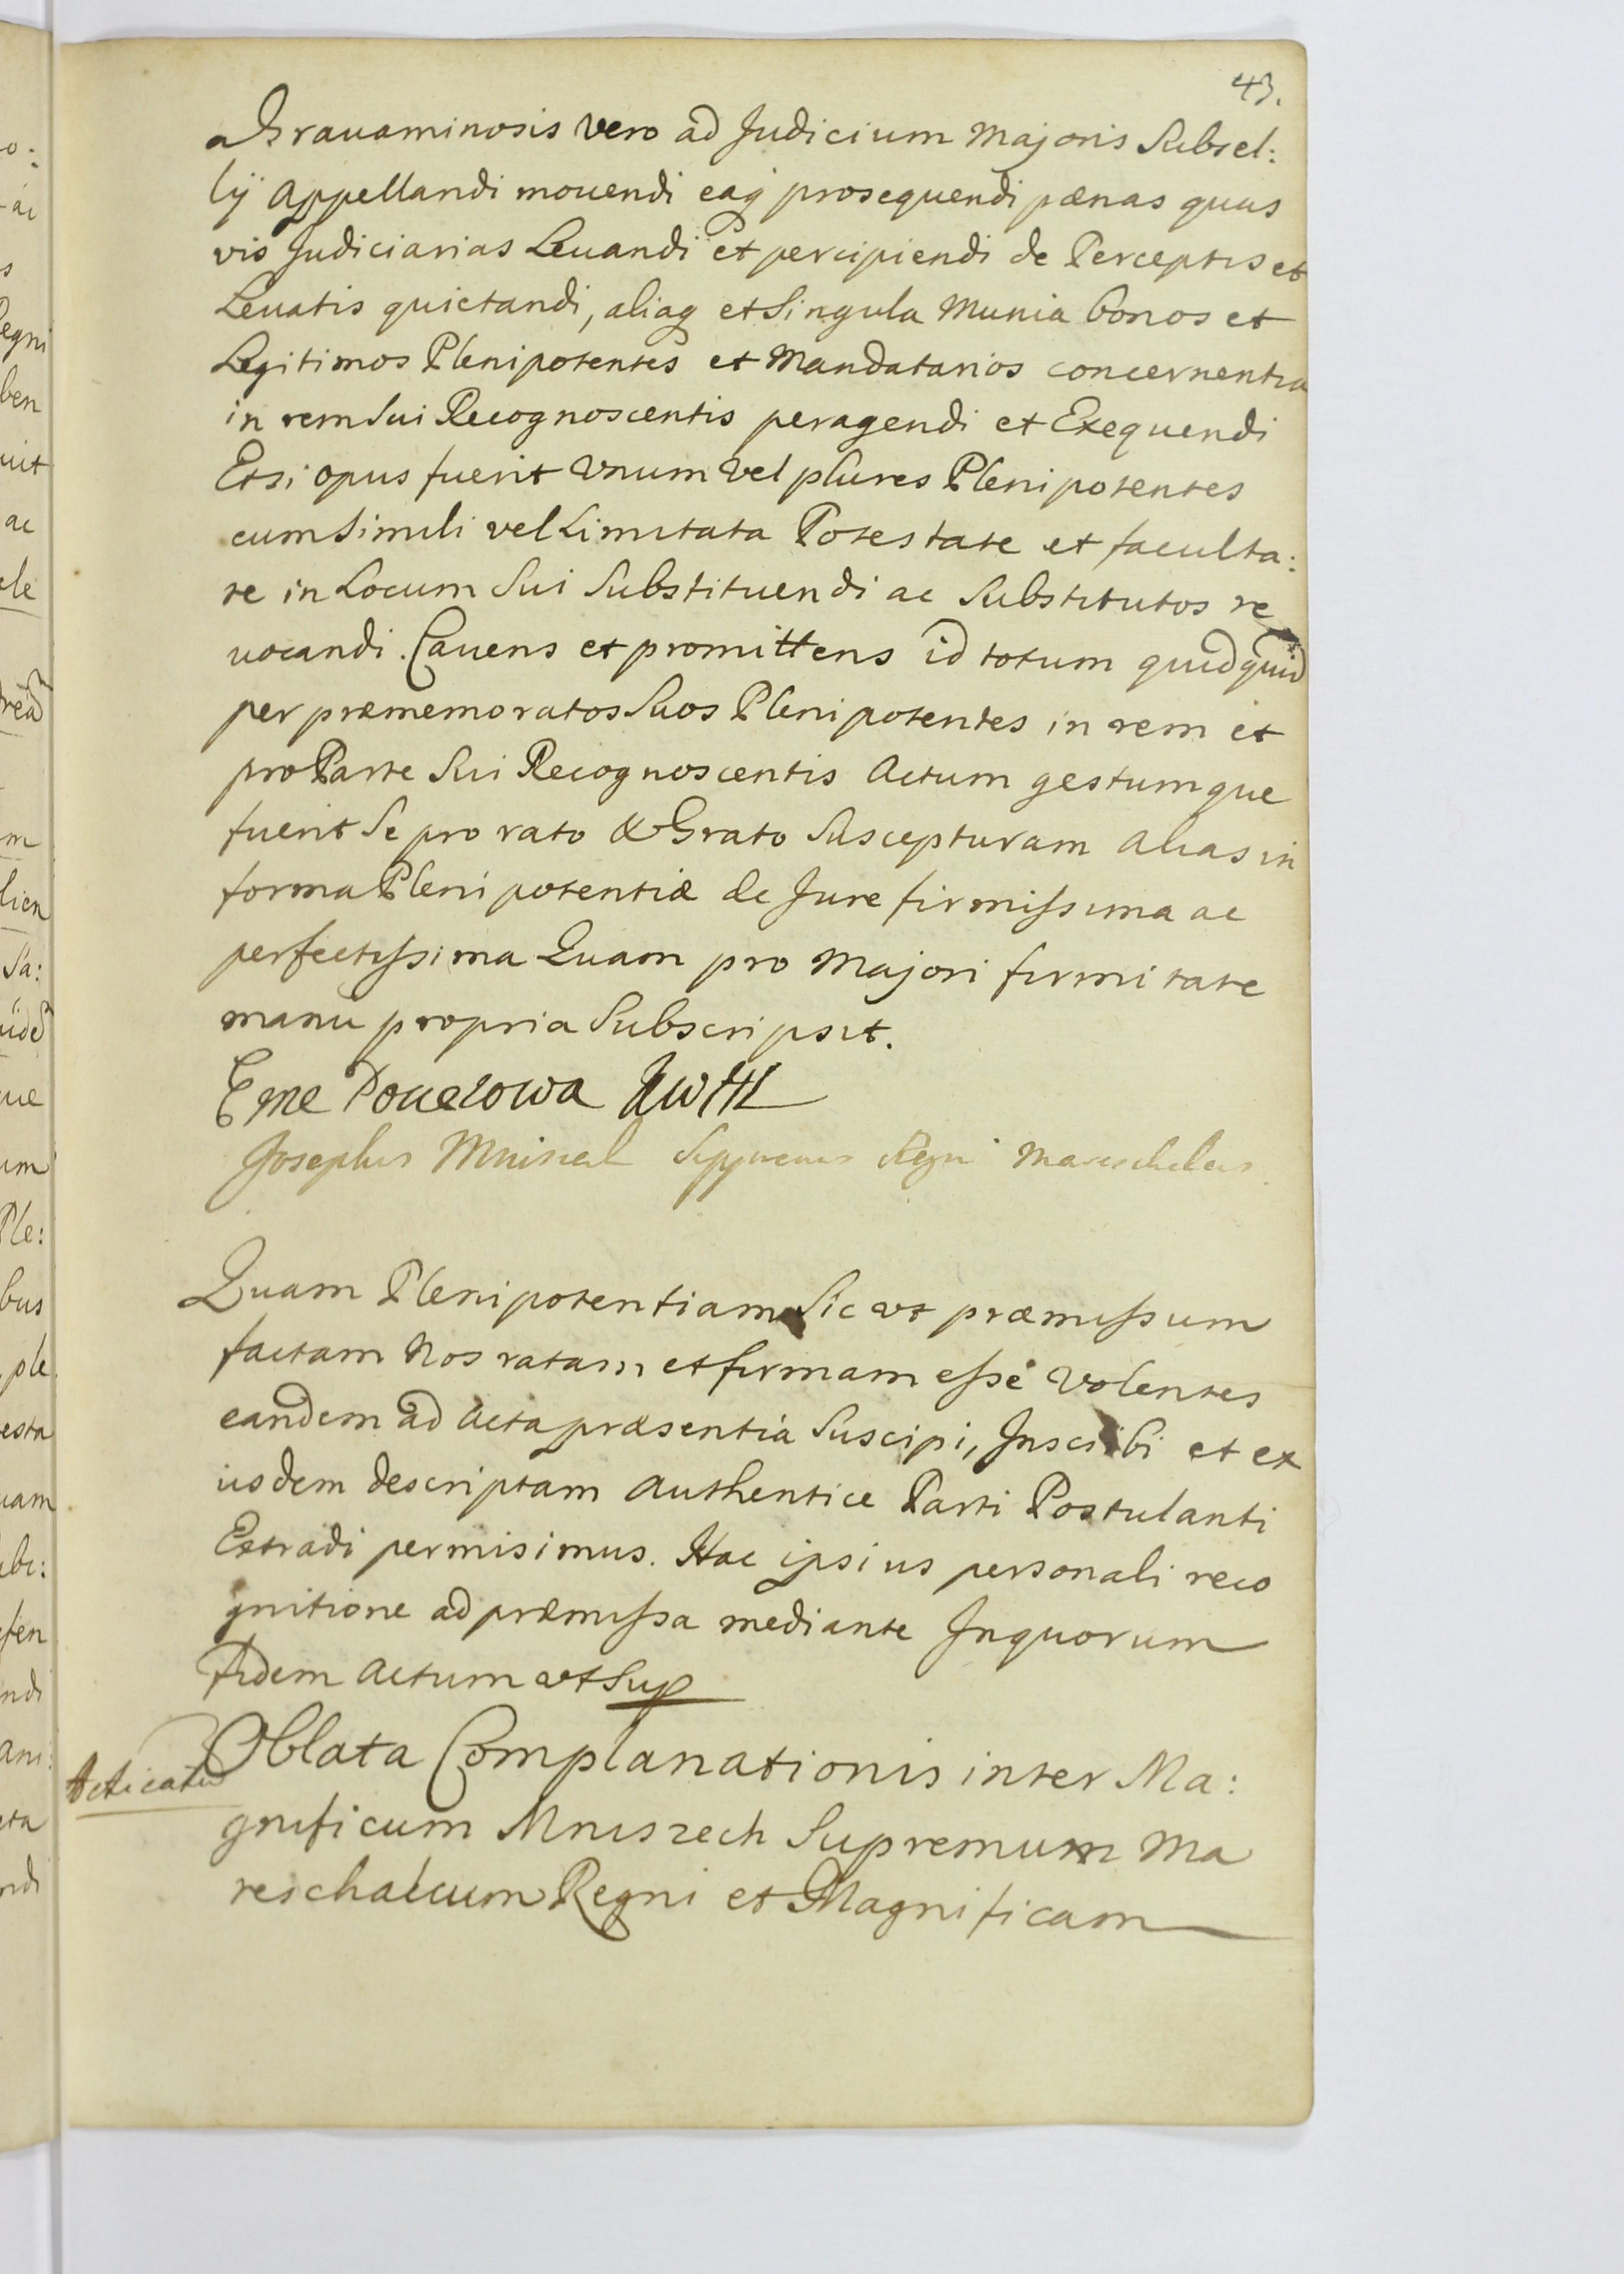 43.
Gravaminosis vero ad Judicium Majoris Subsel:
lij Appellandi mouendi eaq prosequendi pænas quas
vis Judiciarias Leuandi et percipiendi de Perceptis et
Leuatis quietandi, aliaq et Singula Munia bonos et
Legitimos Plenipotentes et Mandatarios concernentia
in rem Sui Recognoscentis peragendi et Exequendi
Et si opus fuerit Vnum Vel plures Plenipotentes
cum Simili vel Limitata Potestate et faculta:
te in Locum Sui Substituendi ac Substitutos re
uocandi. Cauens et promittens id totum quidquid
per præmemoratos Suos Plenipotentes in rem et
pro Parte Sui Recognoscentis Actum gestumque
fuerit Se pro rato & Grato Suscepturam Alias in
forma Plenipotentiæ de Jure firmissima ac
perfectissima Quam pro Majori firmitate
manu propria Subscripsit.
Josephus Mniszech Supremus Regni Mareschalcus
Quam Plenipotentiam Sic vt præmissum
factam Nos ratam et firmam esse Volentes
eandem ad Acta præsentia Suscipi, Inscribi et ex
iisdem descriptam Authentice Parti Postulanti
Extradi permisimus. Hac ipsius personali reco
gnitione ad præmissa mediante Inquorum
fidem Actum vt Sup
Acticatu
Oblata Complanationis inter Ma:
gnificum Mniszech Supremum Ma
reschalcum Regni et Magnificam